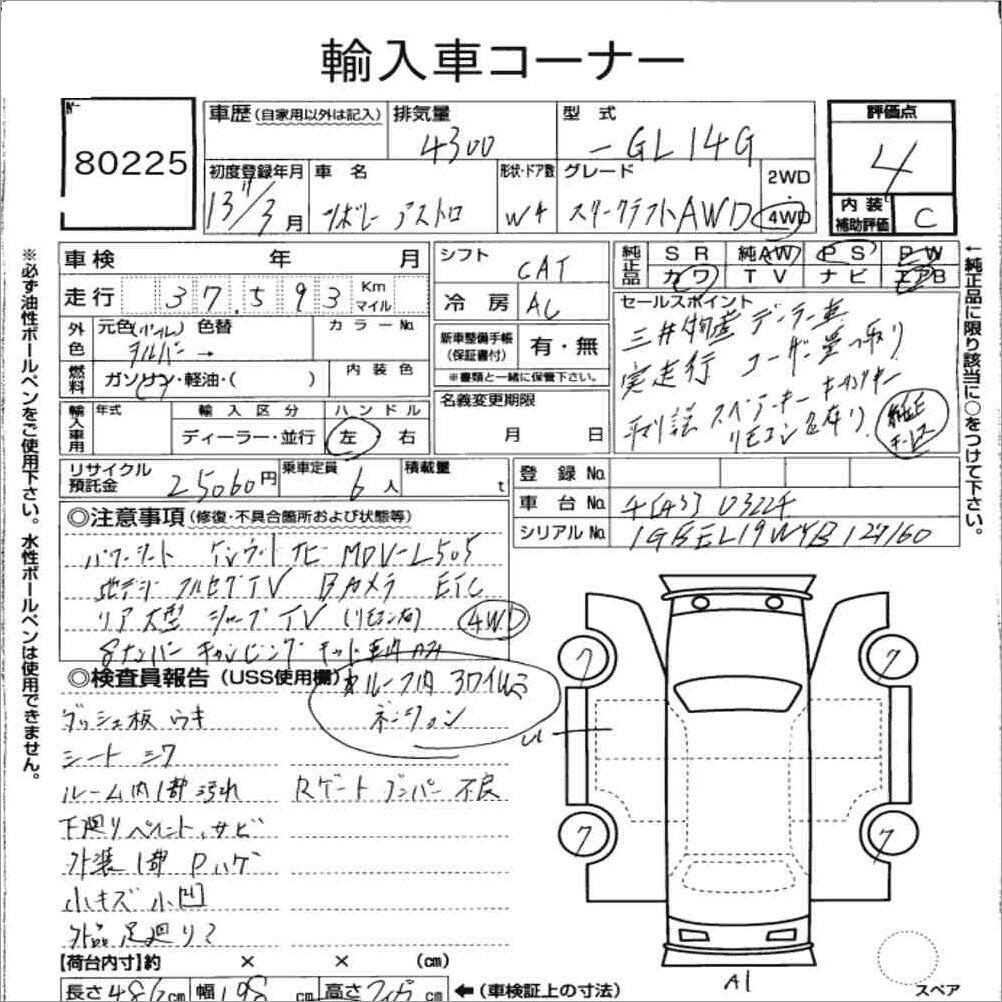 輸入車コーナー
80225
車歴 (自家用以外は記入) 排気量 4300
型式 -GL14G
評価点 4
初度登録年月 13 11/3 月
車名 シボレー アストロ
形状・ドア数 W4
グレード スタークラフト AWD
2WD・4WD
内装補助評価 C
車検 年 月
シフト CAT
純正品 SR 純AW PS PW
カワ TV ナビ エアB
走行 37,593 Km マイル
冷房 AC
セールスポイント
三井物産 ディーラー車
実走行 ユーザー買取り
取説 スペアーキー キャプチャー
リモコン 2ケ有り
外色 元色 シルバー 色替 → カラーNo.
新車整備手帳(保証書付) 有・無
※書類と一緒に保管下さい。
燃料 ガソリン・軽油・( )
内装色
名義変更期限 月 日
輸入車用 年式 輸入区分 ハンドル
ディーラー・並行 左 右
リサイクル預託金 25060円
乗車定員 6人
積載量 t
登録No.
車台No.
シリアルNo.
◎注意事項 (修復・不具合箇所および状態等)
パワーシート ケンウッド ナビ MDV-L505
地デジ フルセグTV Bカメラ ETC
リア大型 シャープTV (リモコン有) 4WD
8ナンバー キャンピング
◎検査員報告 (USS使用欄)
ルーフ内
ダッシュ板 ウキ
シート シワ
ルーム内1部汚れ Rゲート ダンパー 不良
下廻りペイント、サビ
外装1部 Pハゲ
小キズ 小凹
7 7
7 7
A1
スペア
【荷台内寸】約 × × (cm)
長さ 486cm 幅 198 高さ
←(車検証上の寸法)
※必ず油性ボールペンをご使用下さい。水性ボールペンは使用できません。
←純正品に限り該当に○をつけて下さい。